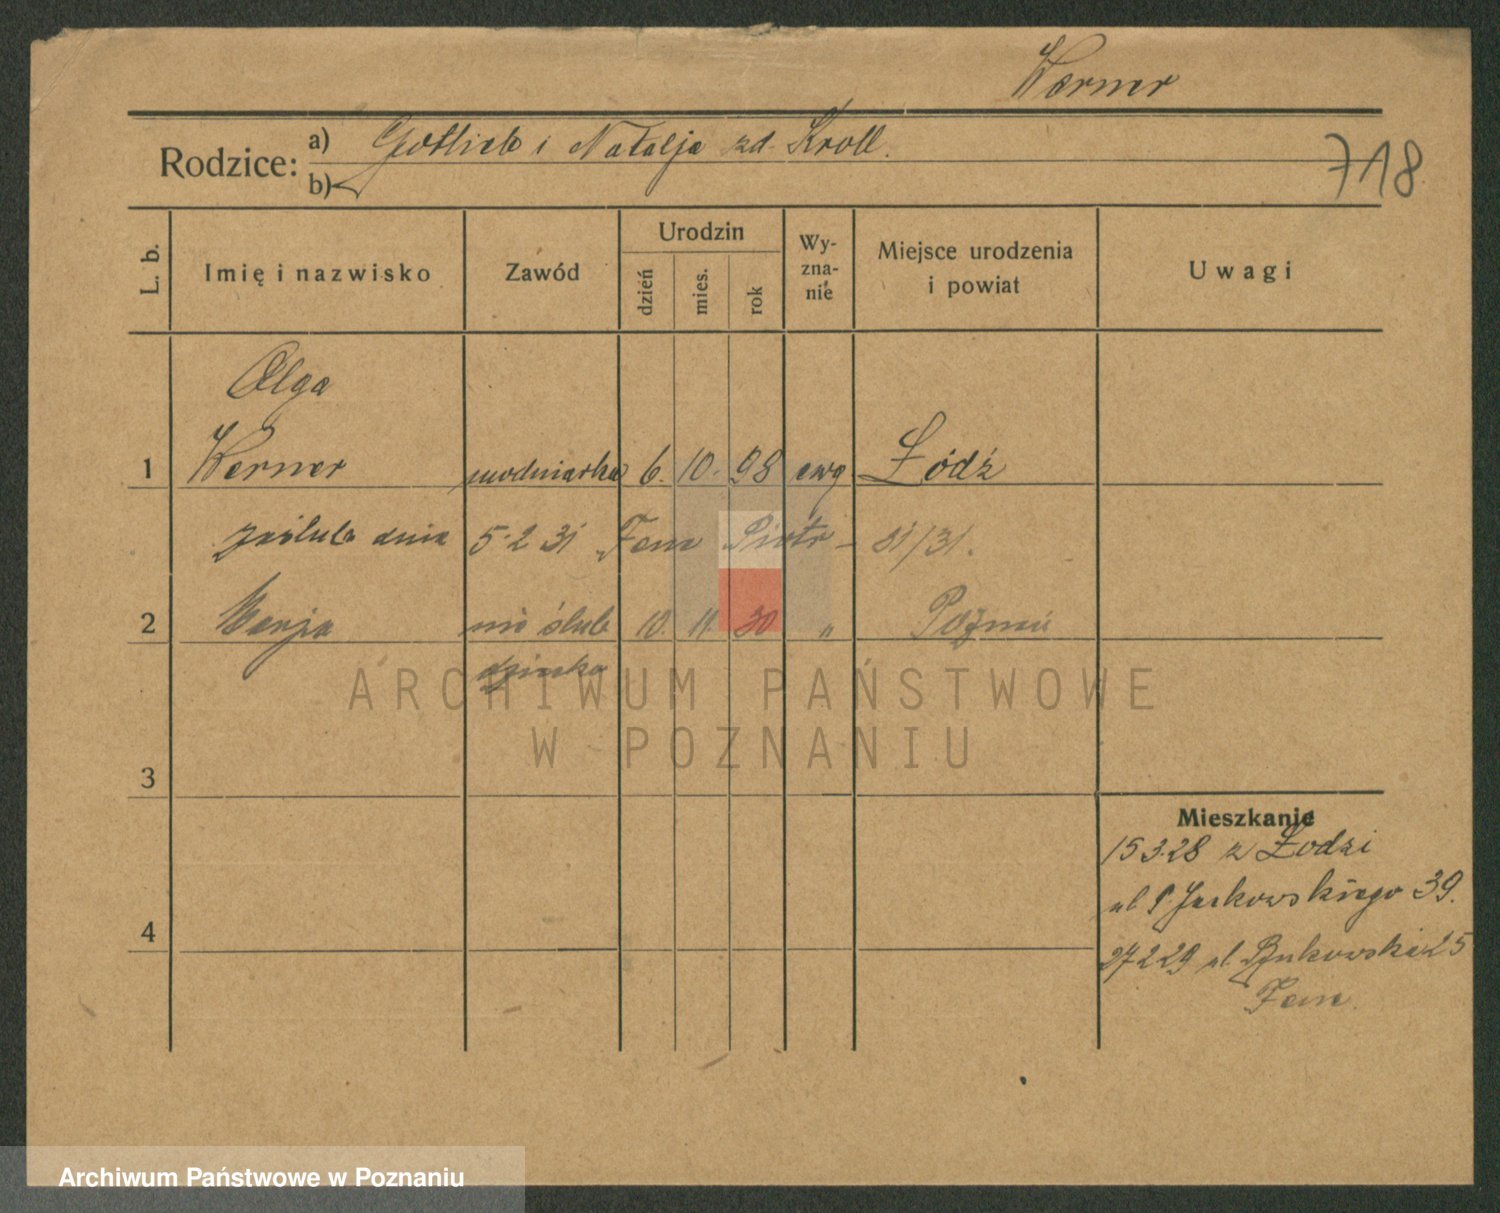 Werner
Rodzice: a) Gotlieb i Natalja zd. Kroll.
b)
718
L. b. Imię i nazwisko Zawód Urodzin dzień mies. rok Wy-zna-nie Miejsce urodzenia i powiat Uwagi
Olga
1 Werner modniarka 6. 10. 98 ewg. Łódź
zaślub dnia 5.2 31 Fem Piotr - 31/31.
2 Marja nie ślub 10. 11. 30 " Poznań
dziecko
ARCHIWUM PAŃSTWOWE
W POZNANIU
3
Mieszkanie
15 3.28 z Łodzi
ul. P. Jackowskiego 39.
4
27 2 29 ul. Bukowska 25
Archiwum Państwowe w Poznaniu